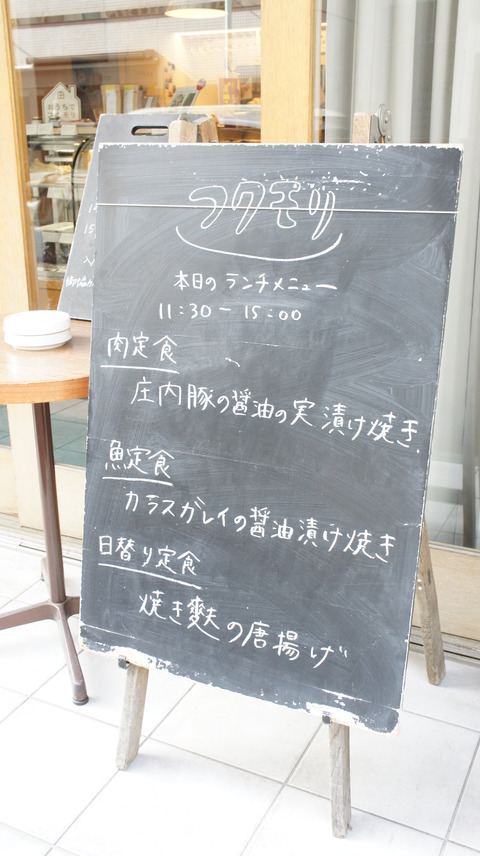 フクモリ
本日のランチメニュー
11:30-15:00
肉定食
庄内豚の醤油の実漬け焼き
魚定食
カラスガレイの醤油漬け焼き
日替り定食
焼き麩の唐揚げ
おうちで